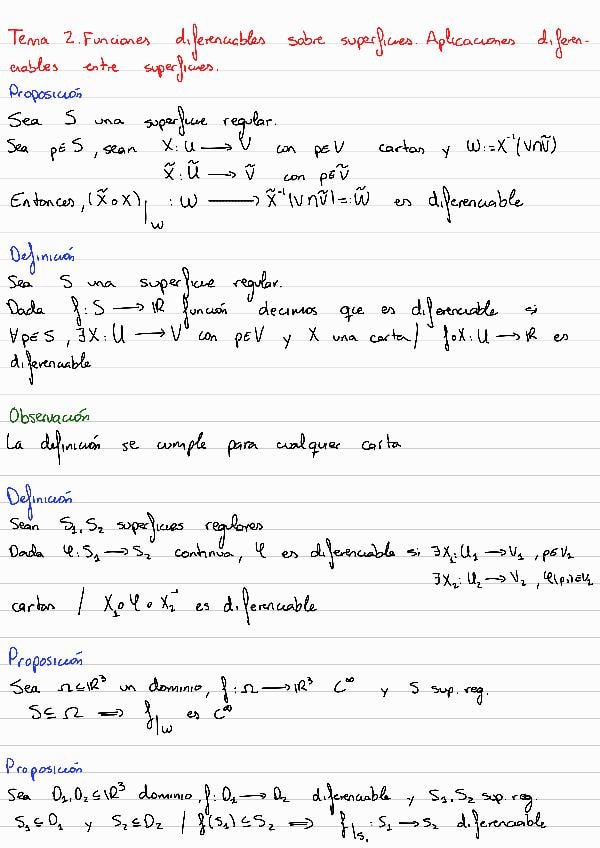 Tema 2. Funciones diferenciables sobre superficies. Aplicaciones diferen-
ciables entre superficies.
Proposición
Sea S una superficie regular.
Sea p∈S, sean X: U ⟶ V con p∈V cartas y W:=X⁻¹(V∩Ṽ)
X̃: Ũ ⟶ Ṽ con p∈Ṽ
Entonces, (X̃∘X)|_W : W ⟶ X̃⁻¹(V∩Ṽ)=:W̃ es diferenciable
Definición
Sea S una superficie regular.
Dada f: S ⟶ ℝ función decimos que es diferenciable si
∀p∈S, ∃X: U ⟶ V con p∈V y X una carta / f∘X: U ⟶ ℝ es
diferenciable
Observación
La definición se cumple para cualquier carta
Definición
Sean S₁, S₂ superficies regulares
Dada φ: S₁ ⟶ S₂ continua, φ es diferenciable si ∃X₁: U₁ ⟶ V₁, p∈V₁
∃X₂: U₂ ⟶ V₂, φ(p)∈V₂
cartas / X₁∘φ∘X₂⁻¹ es diferenciable
Proposición
Sea Ω⊆ℝ³ un dominio, f: Ω ⟶ ℝ³ C^∞ y S sup. reg.
S⊆Ω ⟹ f|_W es C^∞
Proposición
Sea O₁, O₂⊆ℝ³ dominio, f: O₁ ⟶ O₂ diferenciable y S₁, S₂ sup. reg
S₁⊆O₁ y S₂⊆O₂ / f(S₁)⊆S₂ ⟹ f|_S₁ : S₁ ⟶ S₂ diferenciable